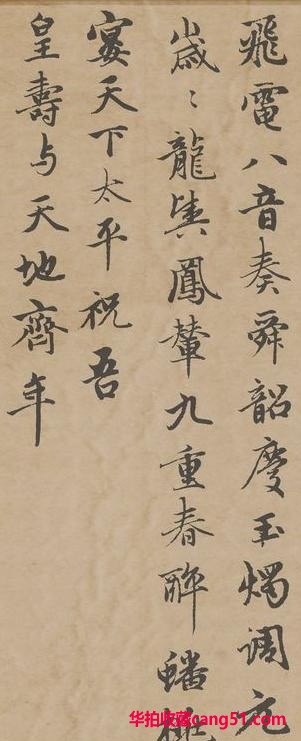 飛電八音奏舜韶慶玉燭調元
歲〻龍輿鳳輦九重春醉蟠桃
宴天下太平祝吾
皇壽与天地齊年
华拍收藏cang51.com